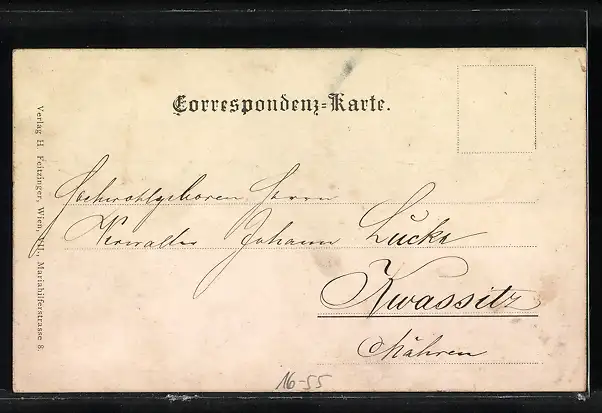 Correspondenz-Karte.
Hochwohlgeboren Herrn
Verwalter Johann Lucka
Kwassitz
Mähren
Verlag H. Feitzinger, Wien, VII., Mariahilferstrasse 8.
16-55